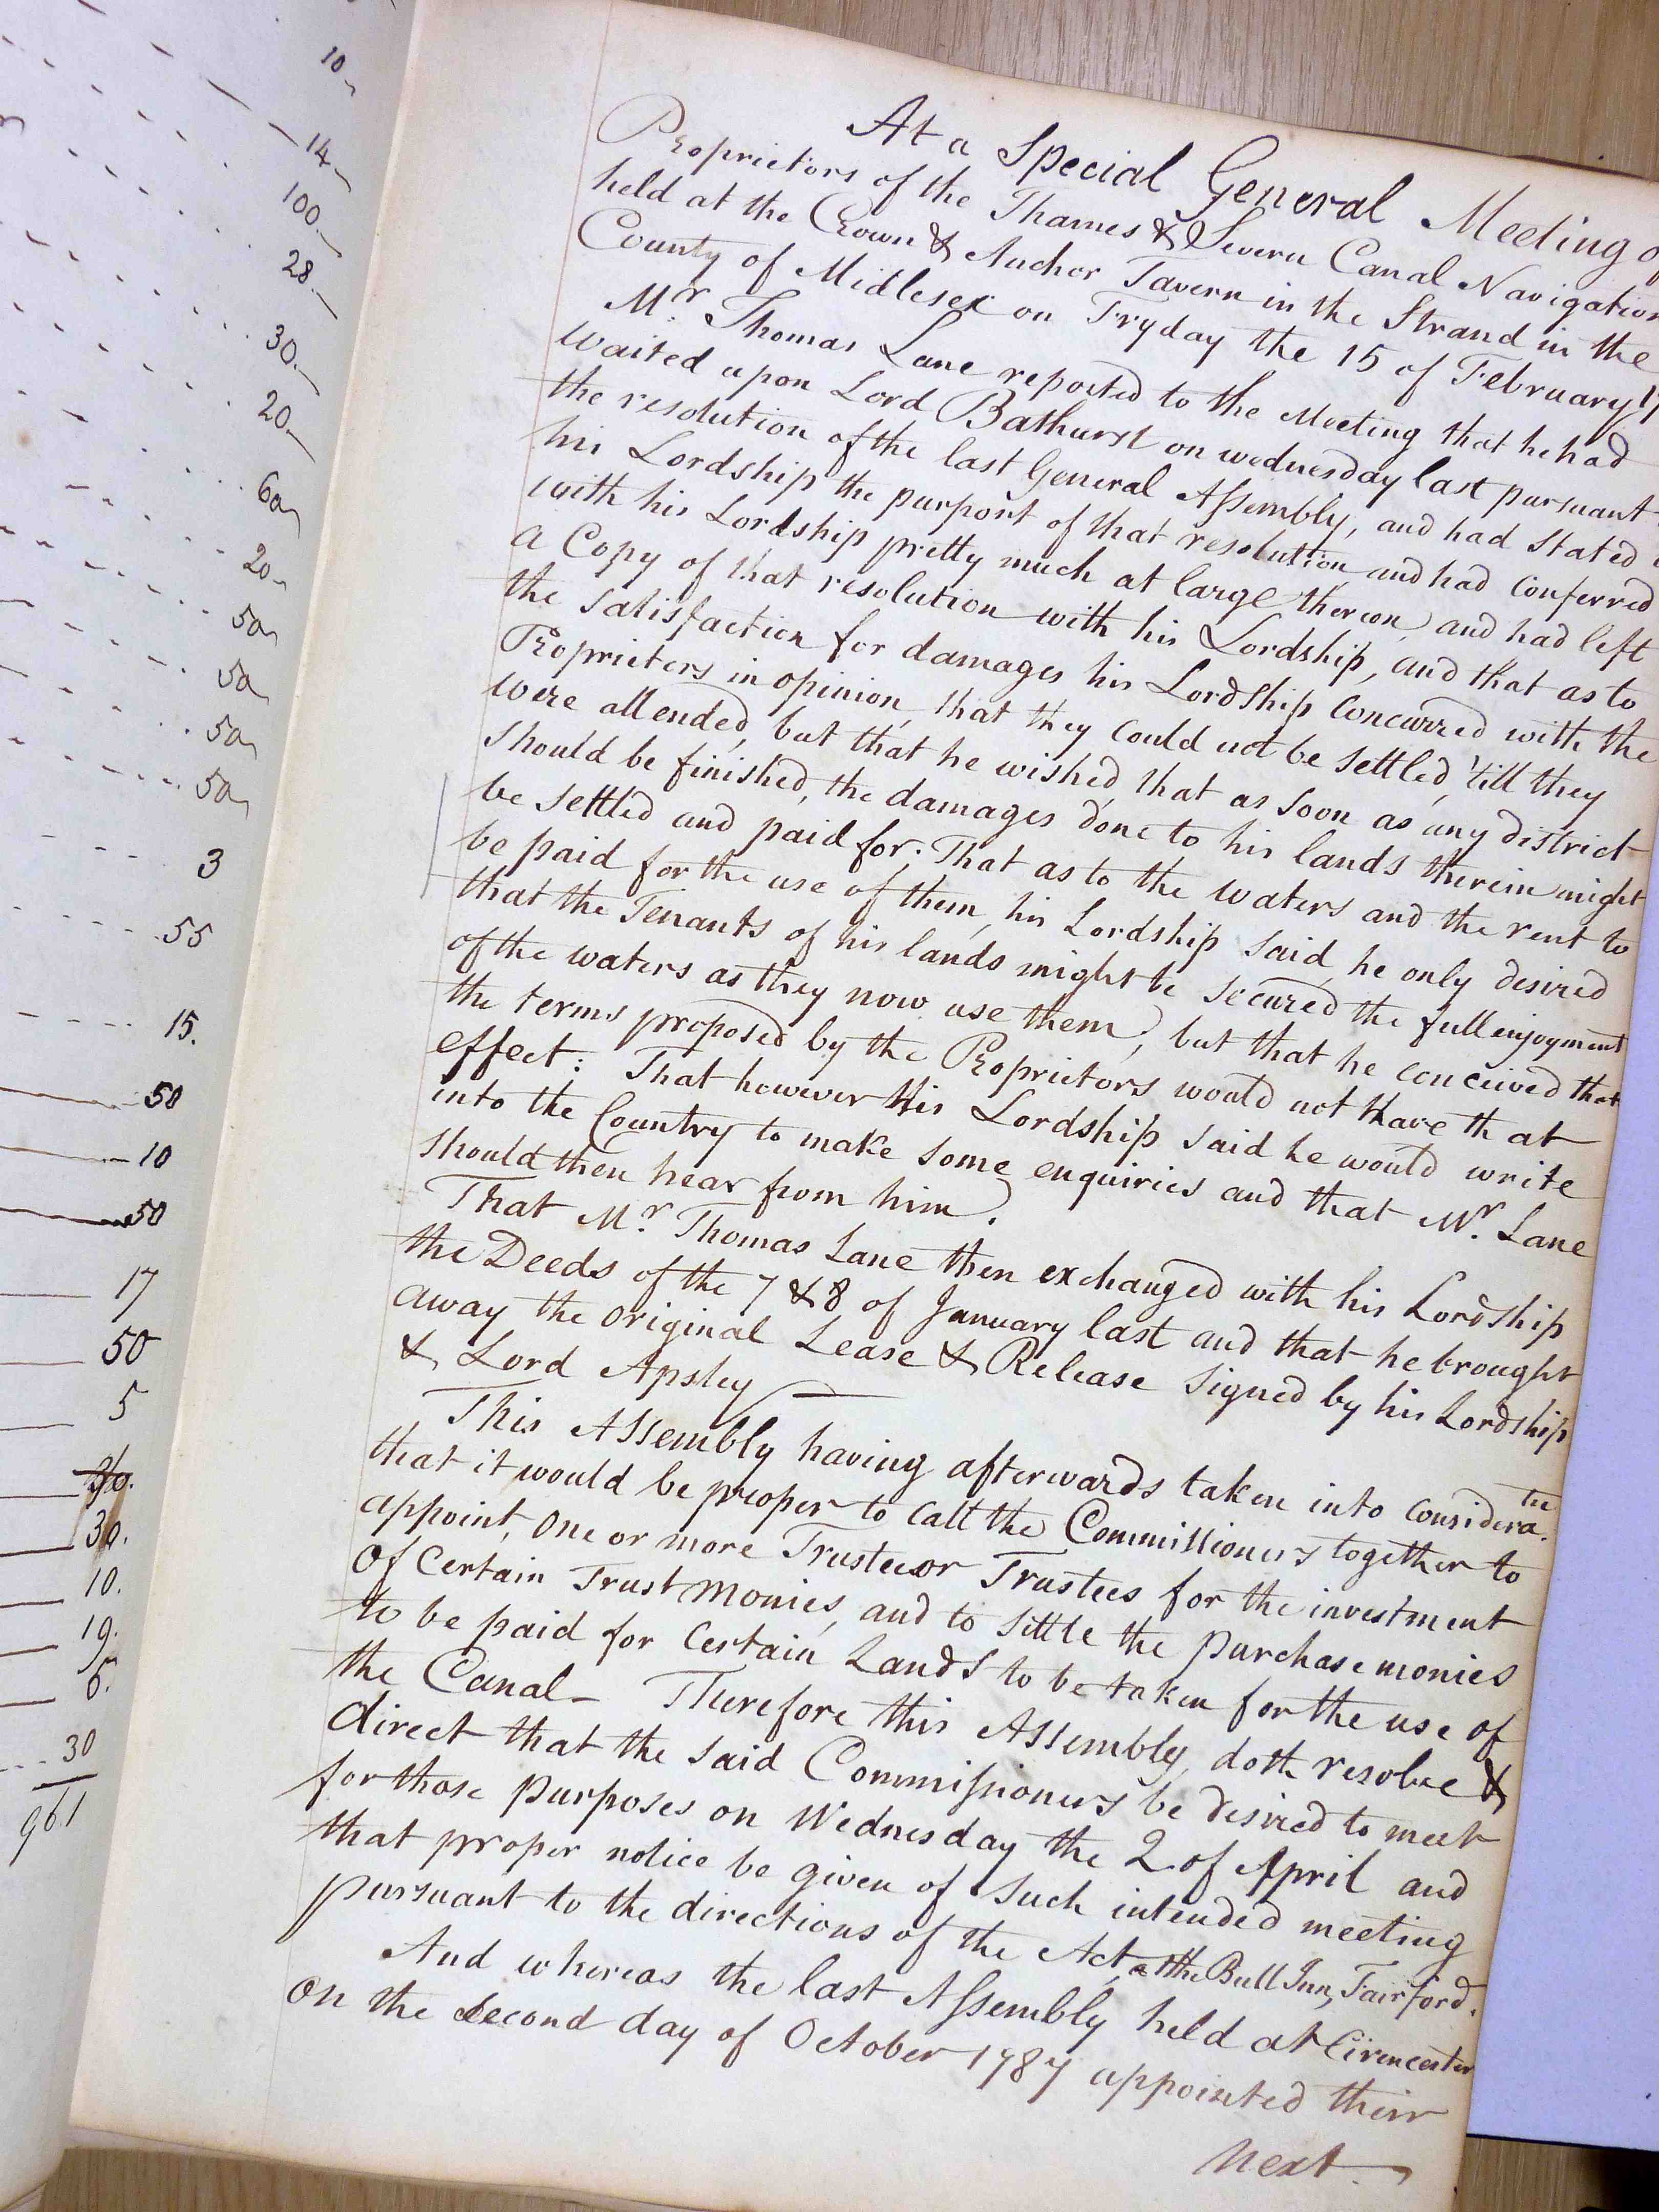 10
14
100.
28.
30.
20.
60
20
50
50
50
50
3
55
15.
50
10
50
17
50
5
30.
10.
19.
6.
30
961
At a Special General Meeting of
Proprietors of the Thames & Severn Canal Navigation
held at the Crown & Anchor Tavern in the Strand in the
County of Midlesex on Fryday the 15 of February 17
Mr. Thomas Lane reported to the Meeting that he had
waited upon Lord Bathurst on wednesday last pursuant
the resolution of the last General Assembly, and had stated
his Lordship the purport of that resolution, and had conferred
with his Lordship pretty much at large thereon, and had left
a Copy of that resolution with his Lordship, and that as to
the satisfaction for damages his Lordship concurred with the
Proprietors in opinion, that they could not be settled, 'till they
were attended, but that he wished, that as soon as any district
should be finished, the damages done to his lands therein might
be settled and paid for; That as to the waters and the rent to
be paid for the use of them, his Lordship said, he only desired
that the Tenants of his lands might be secured the full enjoyment
of the waters as they now use them; but that he conceived that
the terms proposed by the Proprietors would not have that
effect: That however His Lordship said he would write
into the Country to make some enquiries and that Mr. Lane
should then hear from him.
That Mr. Thomas Lane then exchanged with his Lordship
the Deeds of the 7 & 8 of January last and that he brought
away the original Lease & Release signed by his Lordship
& Lord Apsley
This Assembly having afterwards taken into considera.tn
that it would be proper to call the Commissioners together to
appoint, one or more Trustee or Trustees for the investment
of Certain Trust Monies, and to settle the purchase monies
to be paid for Certain Lands to be taken for the use of
the Canal - Therefore this Assembly, doth resolve &
direct that the said Commissioners be desired to meet
for those purposes on Wednesday the 2 of April and
that proper notice be given of such intended meeting
pursuant to the directions of the Act, at the Bull Inn, Fairford.
And whereas the last Assembly held at Cirencester
on the second day of October 1787 appointed their
next